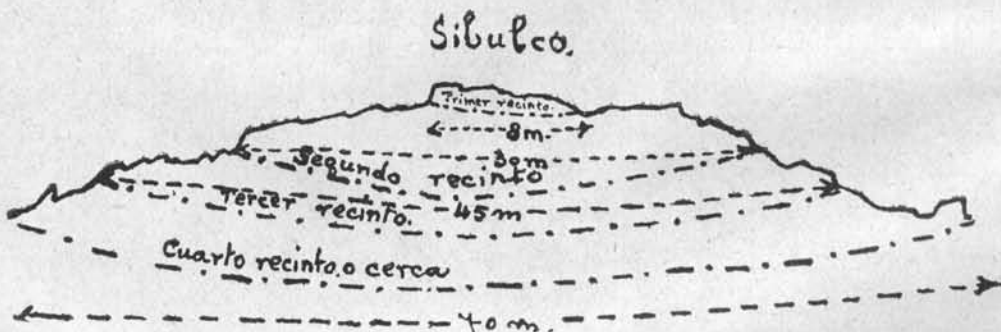 Sibulco.
Primer recinto.
8m.
30m
Segundo recinto
Tercer recinto. 45m
Cuarto recinto o cerca
70 m.